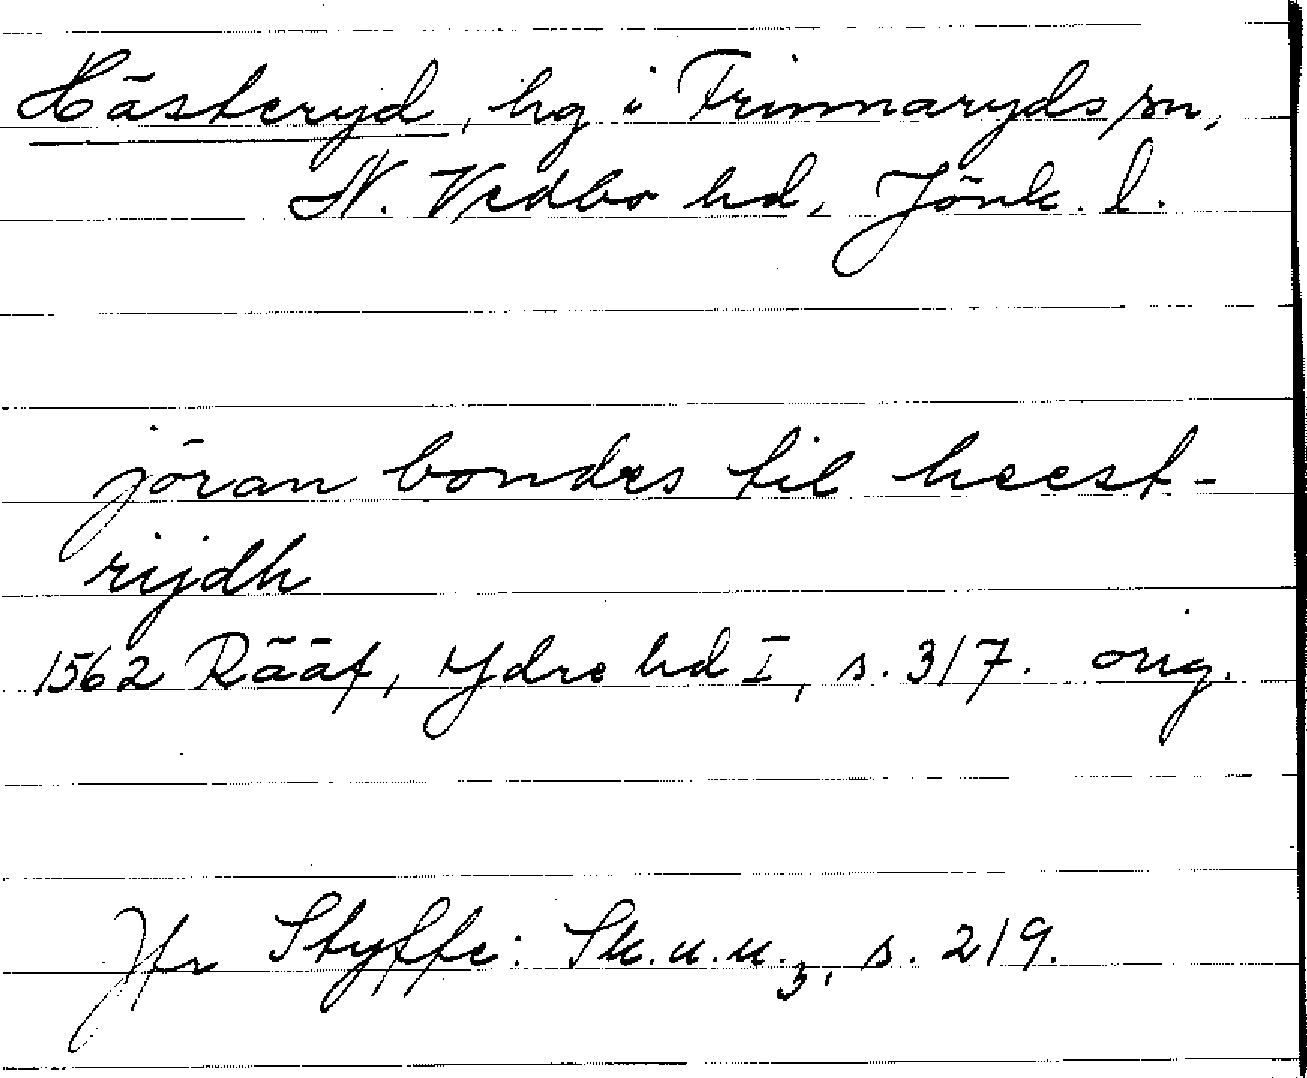 Hästeryd, hg i Frinnaryds sn,
N. Vedbo hd, Jönk. l.
jöran bondes til heest-
rijdh
1562 Rääf, Ydre hd I, s. 317. orig.
Jfr Styffe: Sk.u.u.3, s. 219.